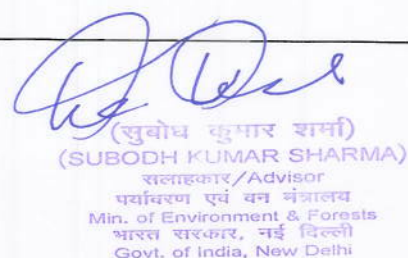 (सुबोध कुमार शर्मा)
(SUBODH KUMAR SHARMA)
सलाहकार/Advisor
पर्यावरण एवं वन मंत्रालय
Min. of Environment & Forests
भारत सरकार, नई दिल्ली
Govt. of India, New Delhi